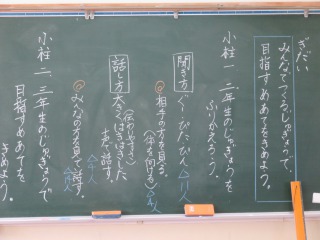 ぎだい
みんなでつくるじゅぎょうで、
目指すめあてをきめよう。
小柱一 二年生のじゅぎょうを
ふりかえろう。
聞き方 ぐ・ぴた・ぴん
相手の方を見る。
(体を向ける)
話し方 大きくはきはきした
(伝わりやすさ)
声で話す。
みんなの方を見て話す。
小柱二 三年生のじゅぎょうで
目指すめあてを
きめよう。